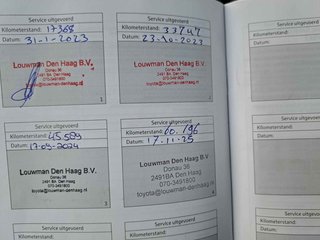 Service uitgevoerd
Kilometerstand: 17368
Datum: 31-1-2023
Louwman Den Haag B.V.
Donau 36
2491BA Den Haag
070-3491800
toyota@louwman-denhaag.nl
1
Service uitgevoerd
Kilometerstand:
Datum: 23-10-2023
Louwman Den Haag B.V.
Donau 36
2491BA Den Haag
070-3491800
toyota@louwman-denhaag.nl
Service uitgevoerd
Kilometerstand:
Datum:
Service uitgevoerd
Kilometerstand: 45589
Datum: 17-09-2024
Louwman Den Haag B.V.
Donau 36
2491BA Den Haag
070-3491800
toyota@louwman-denhaag.nl
3
Service uitgevoerd
Kilometerstand: 60.196
Datum: 17-11-25
Louwman Den Haag B.V.
Donau 36
2491BA Den Haag
070-3491800
toyota@louwman-denhaag.nl
Service uitgevoerd
Kilometerstand:
Datum:
Service uitgevoerd
Service uitgevoerd
Service uitgevoerd